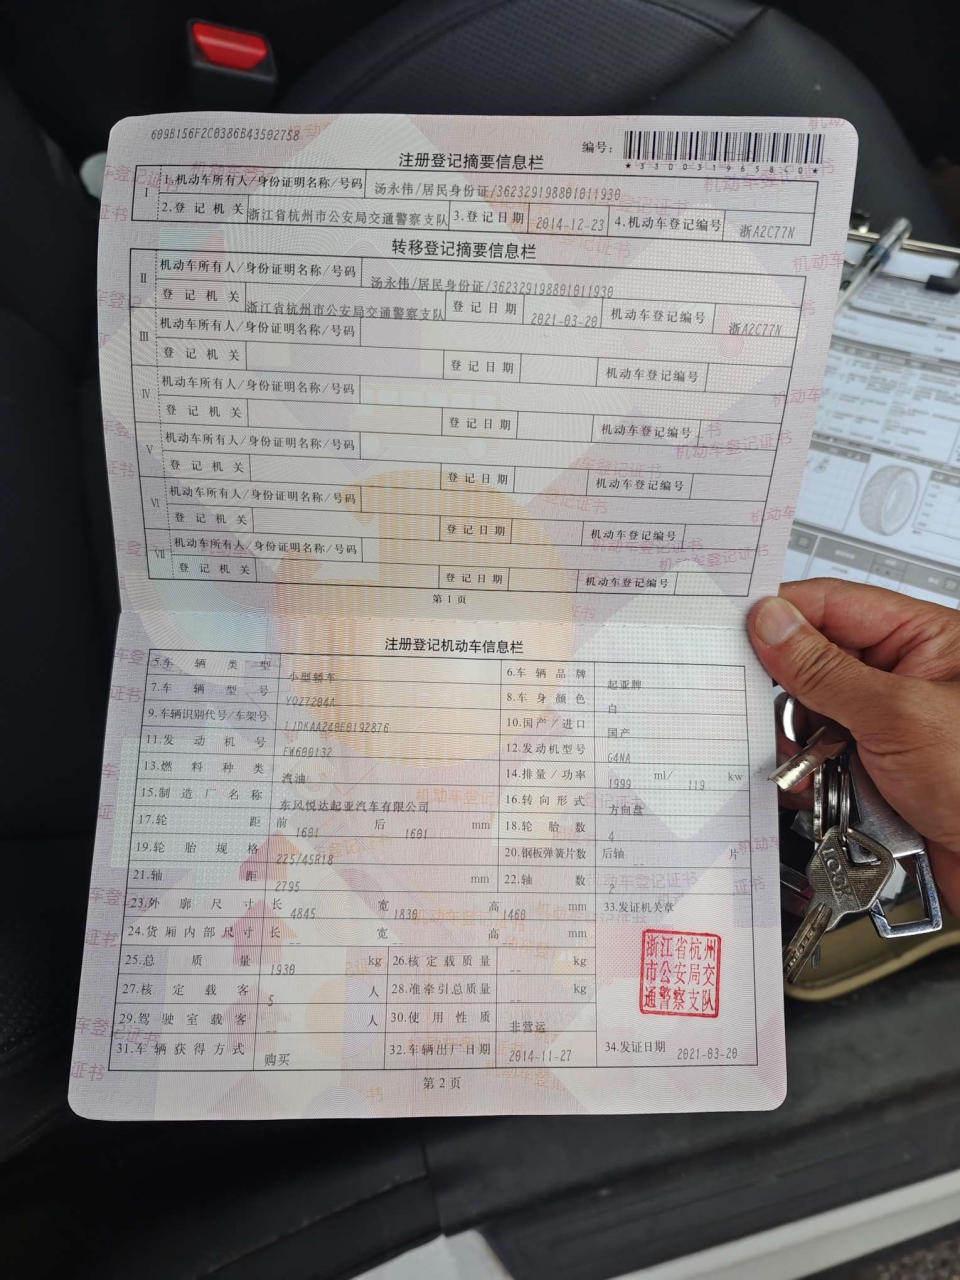 609B156F2C0386B43502758
编号：
*330031965840*
注册登记摘要信息栏
I 1.机动车所有人/身份证明名称/号码 汤永伟/居民身份证/362329198801011930
2.登记机关 浙江省杭州市公安局交通警察支队 3.登记日期 2014-12-23 4.机动车登记编号 浙A2C77N
转移登记摘要信息栏
II 机动车所有人/身份证明名称/号码 汤永伟/居民身份证/362329198801011930
登记机关 浙江省杭州市公安局交通警察支队 登记日期 2021-03-20 机动车登记编号 浙A2C77N
III 机动车所有人/身份证明名称/号码
登记机关 登记日期 机动车登记编号
IV 机动车所有人/身份证明名称/号码
登记机关 登记日期 机动车登记编号
V 机动车所有人/身份证明名称/号码
登记机关 登记日期 机动车登记编号
VI 机动车所有人/身份证明名称/号码
登记机关 登记日期 机动车登记编号
VII 机动车所有人/身份证明名称/号码
登记机关 登记日期 机动车登记编号
第1页
注册登记机动车信息栏
5.车辆类型 小型轿车 6.车辆品牌 起亚牌
7.车辆型号 YQZ7204A 8.车身颜色 白
9.车辆识别代号/车架号 LJDKAA240E0192876 10.国产/进口 国产
11.发动机号 EW600132 12.发动机型号 G4NA
13.燃料种类 汽油 14.排量/功率 1999 ml/ 119 kw
15.制造厂名称 东风悦达起亚汽车有限公司 16.转向形式 方向盘
17.轮距 前 1601 后 1601 mm 18.轮胎数 4
19.轮胎规格 225/45R18 20.钢板弹簧片数 后轴 -- 片
21.轴距 2795 mm 22.轴数 2
23.外廓尺寸 长 4845 宽 1830 高 1460 mm 33.发证机关章
24.货厢内部尺寸 长 -- 宽 -- 高 -- mm
25.总质量 1930 kg 26.核定载质量 -- kg
27.核定载客 5 人 28.准牵引总质量 -- kg
29.驾驶室载客 -- 人 30.使用性质 非营运
31.车辆获得方式 购买 32.车辆出厂日期 2014-11-27 34.发证日期 2021-03-20
浙江省杭州
市公安局交
通警察支队
第2页